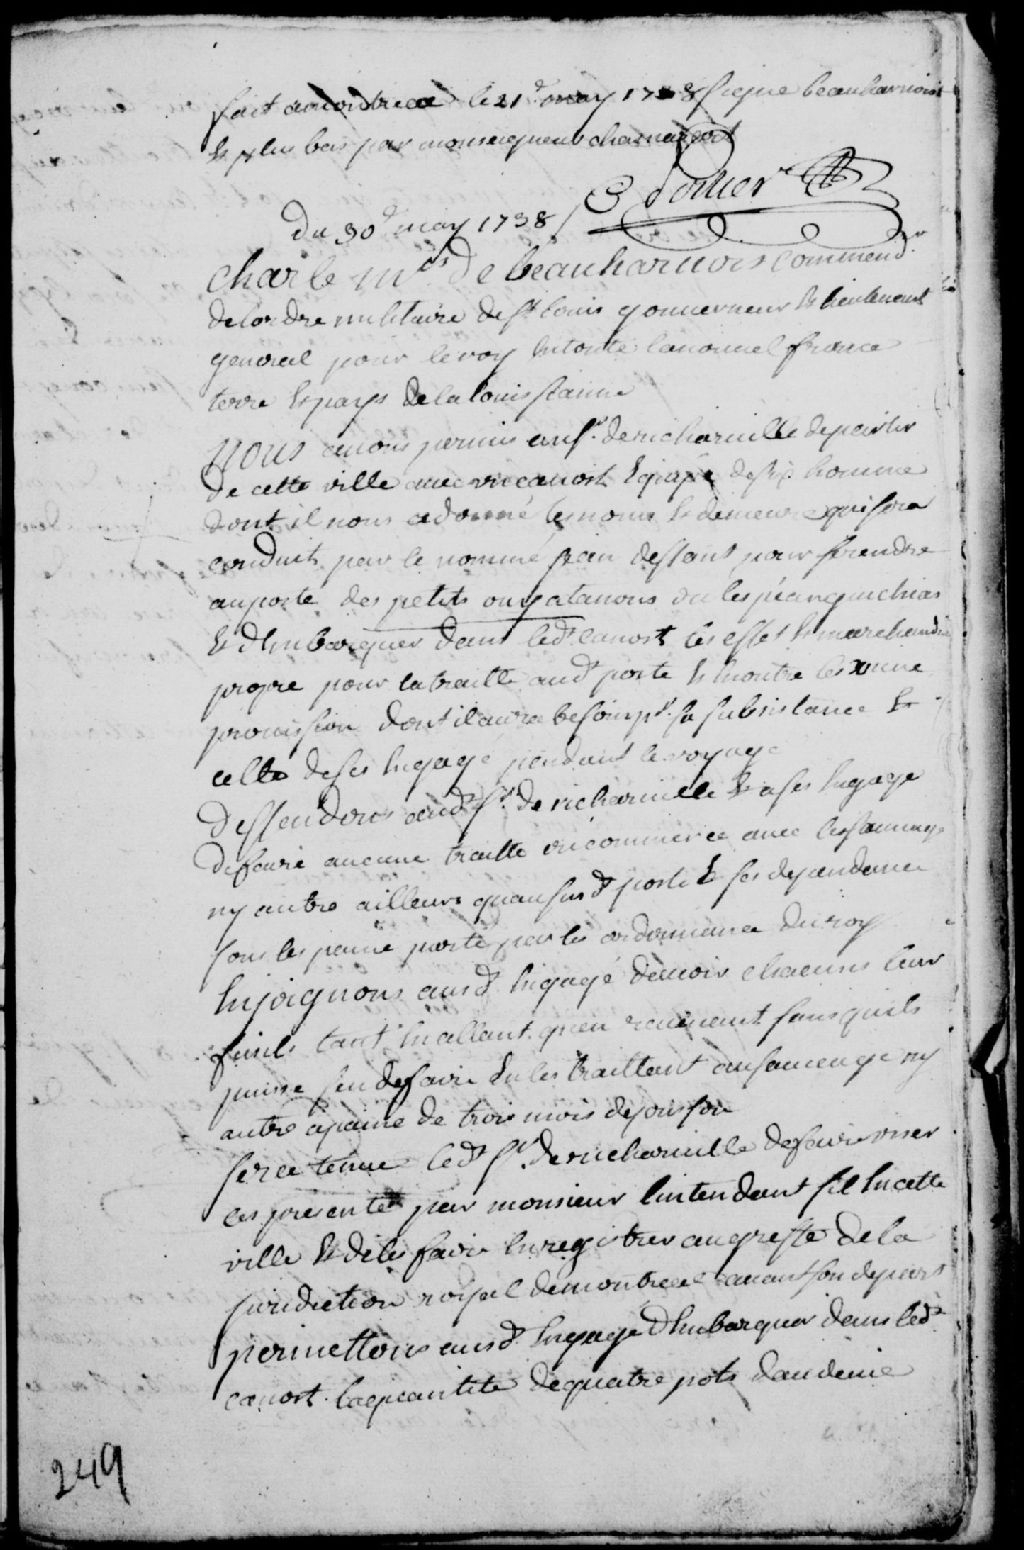 fait a montreal le 21e may 1738 signe beauharnois
& plus bas par monseigneur chamassort
C Porlier
Du 30e may 1738 /
Charle mis de beauharnois Command.r
de lordre militaire de st louis gouuerneur & lieutenant
general pour le roy en toute la nouuel france
terre & pays de la louissianne
Nous auons permis au sr. de richaruille de partir
de cette ville auec un canost Equipé de six homme
dont il nous a donné les noms & demeure qui sera
conduit par le nommé jean dessant pour se rendre
au poste des petits ouyatanons ou les peanguichias
& d'Embarquer dans led. canost les effet & marchandise
propre pour la traitte aud. poste & Enoutre les
prouission dont il aura besoin pr. sa subsistance &
celle de ses Engagé pendant le voyage
Deffendons aud. sr. de richaruille & a ses Engagé
de faire aucune traitte ni commerce auec les sauuage
ny autre ailleurs quau susd. poste & ses dependance
sous les peine porté par les ordonnance du roy
Enjoignons ausd. Engagé dauoir chacuns leur
fusils tant En allant qu'en reuenant sans quils
puisse sen defaire En les traittant au sauuage ny
autre a paine de trois mois de prison
sera tenue led. sr. de richaruille de faire viser
ces presente par monsieur lintendant sil En cette
ville & de les faire Enregistrer au greffe de la
juridiction royal de montreal auant son depart
permettons ausd. Engagé d'Embarquer dans led.
canost la quantite de quatre pots deaudevie
249